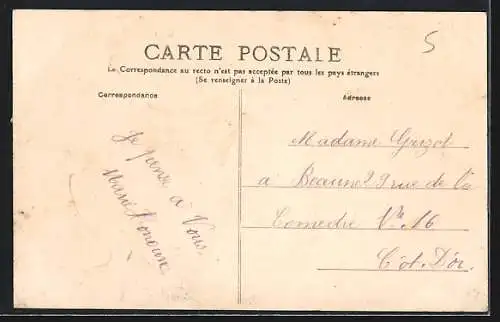 5
CARTE POSTALE
La Correspondance au recto n'est pas acceptée par tous les pays étrangers
(Se renseigner à la Poste)
Correspondance
Adresse
Je pense à Vous
Marie
Madame Guizot
a Beaune 29 rue de la
Comedie No 16
Côt. D'Or.